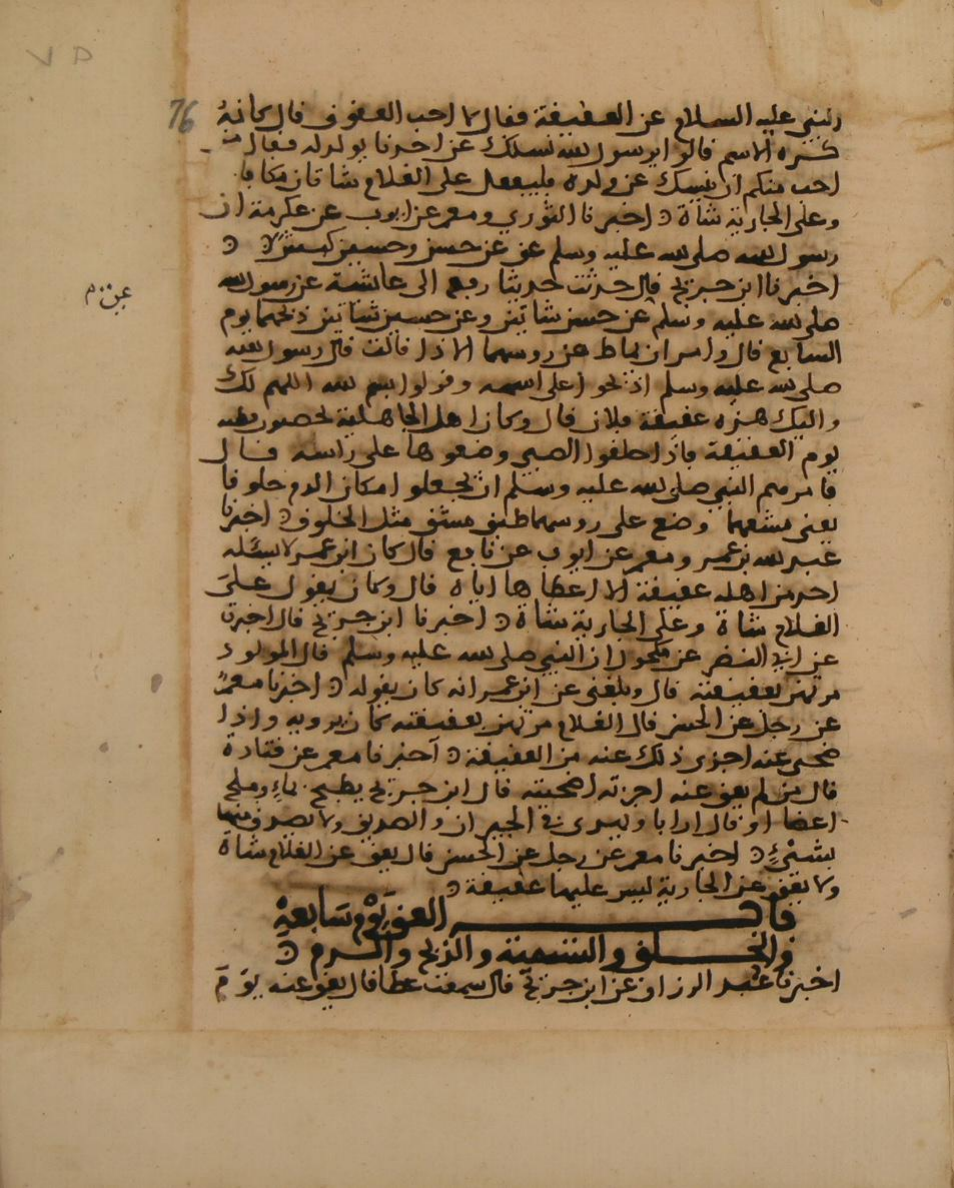 76
النبي عليه السلام عن العقيقة فقال لا احب العقوق قال كانه
كره الاسم قالوا يرسول الله نسلك عن احدنا يولد له فقال من
احب منكم ان ينسك عن ولده فليفعل على الغلام شاتان مكافا
وعلى الجارية شاة اخبرنا الثوري ومعمر عن ايوب عن عكرمة ان
رسول الله صلى الله عليه وسلم عق عن حسن وحسين كبشين
اخبرنا ابن جريج قال حدثت حديثا رفع الى عائشة عن رسول الله
صلى الله عليه وسلم عن حسن شاتين وعن حسين شاتين ذبحهما يوم
السابع قال وامر ان يماط عن روسهما الاذا قالت قال رسول الله
صلى الله عليه وسلم اذبحوا على اسمه وقولوا بسم الله اللهم لك
واليك هذه عقيقة فلان قال وكان اهل الجاهلية يخضبون قطنه
يوم العقيقة فاذا حلقوا الصبي وضعوها على راسه قال
فامرهم النبي صلى الله عليه وسلم ان يجعلوا مكان الدم خلوقا
يعني مشقهما وضع على روسهما طين مشق مثل الخلوق اخبرنا
عبد الله بن عمر ومعمر عن ايوب عن نافع قال كان ابن عمر لا يسله
احد من اهله عقيقة الا اعطاها اياه قال وكان يقول على
الغلام شاة وعلى الجارية شاة اخبرنا ابن جريج قال اخبرت
عن ابي النضر عن مكحول ان النبي صلى الله عليه وسلم قال المولود
مرتهن بعقيقته قال وبلغني عن ابن عمر انه كان يقوله اخبرنا معمر
عن رجل عن الحسن قال الغلام مرتهن بعقيقته كان يرويه واذا
ضحى عنه اجزى ذلك عنه من العقيقة اخبرنا معمر عن قتادة
قال من لم يعق عنه اجزته اضحيته قال ابن جريج يطبخ بماء وملح
اعضا او قال ارابا ويهدى في الجيران والصديق ولا يصدق منها
بشيء اخبرنا معمر عن رجل عن الحسن قال يعق عن الغلام شاة
ولا يعق عن الجارية ليس عليها عقيقة
باب العق يوم سابعه
والحلق والتسمية والذبح والدم
اخبرنا عبد الرزاق عن ابن جريج قال سمعت عطا قال يعق عنه يوم